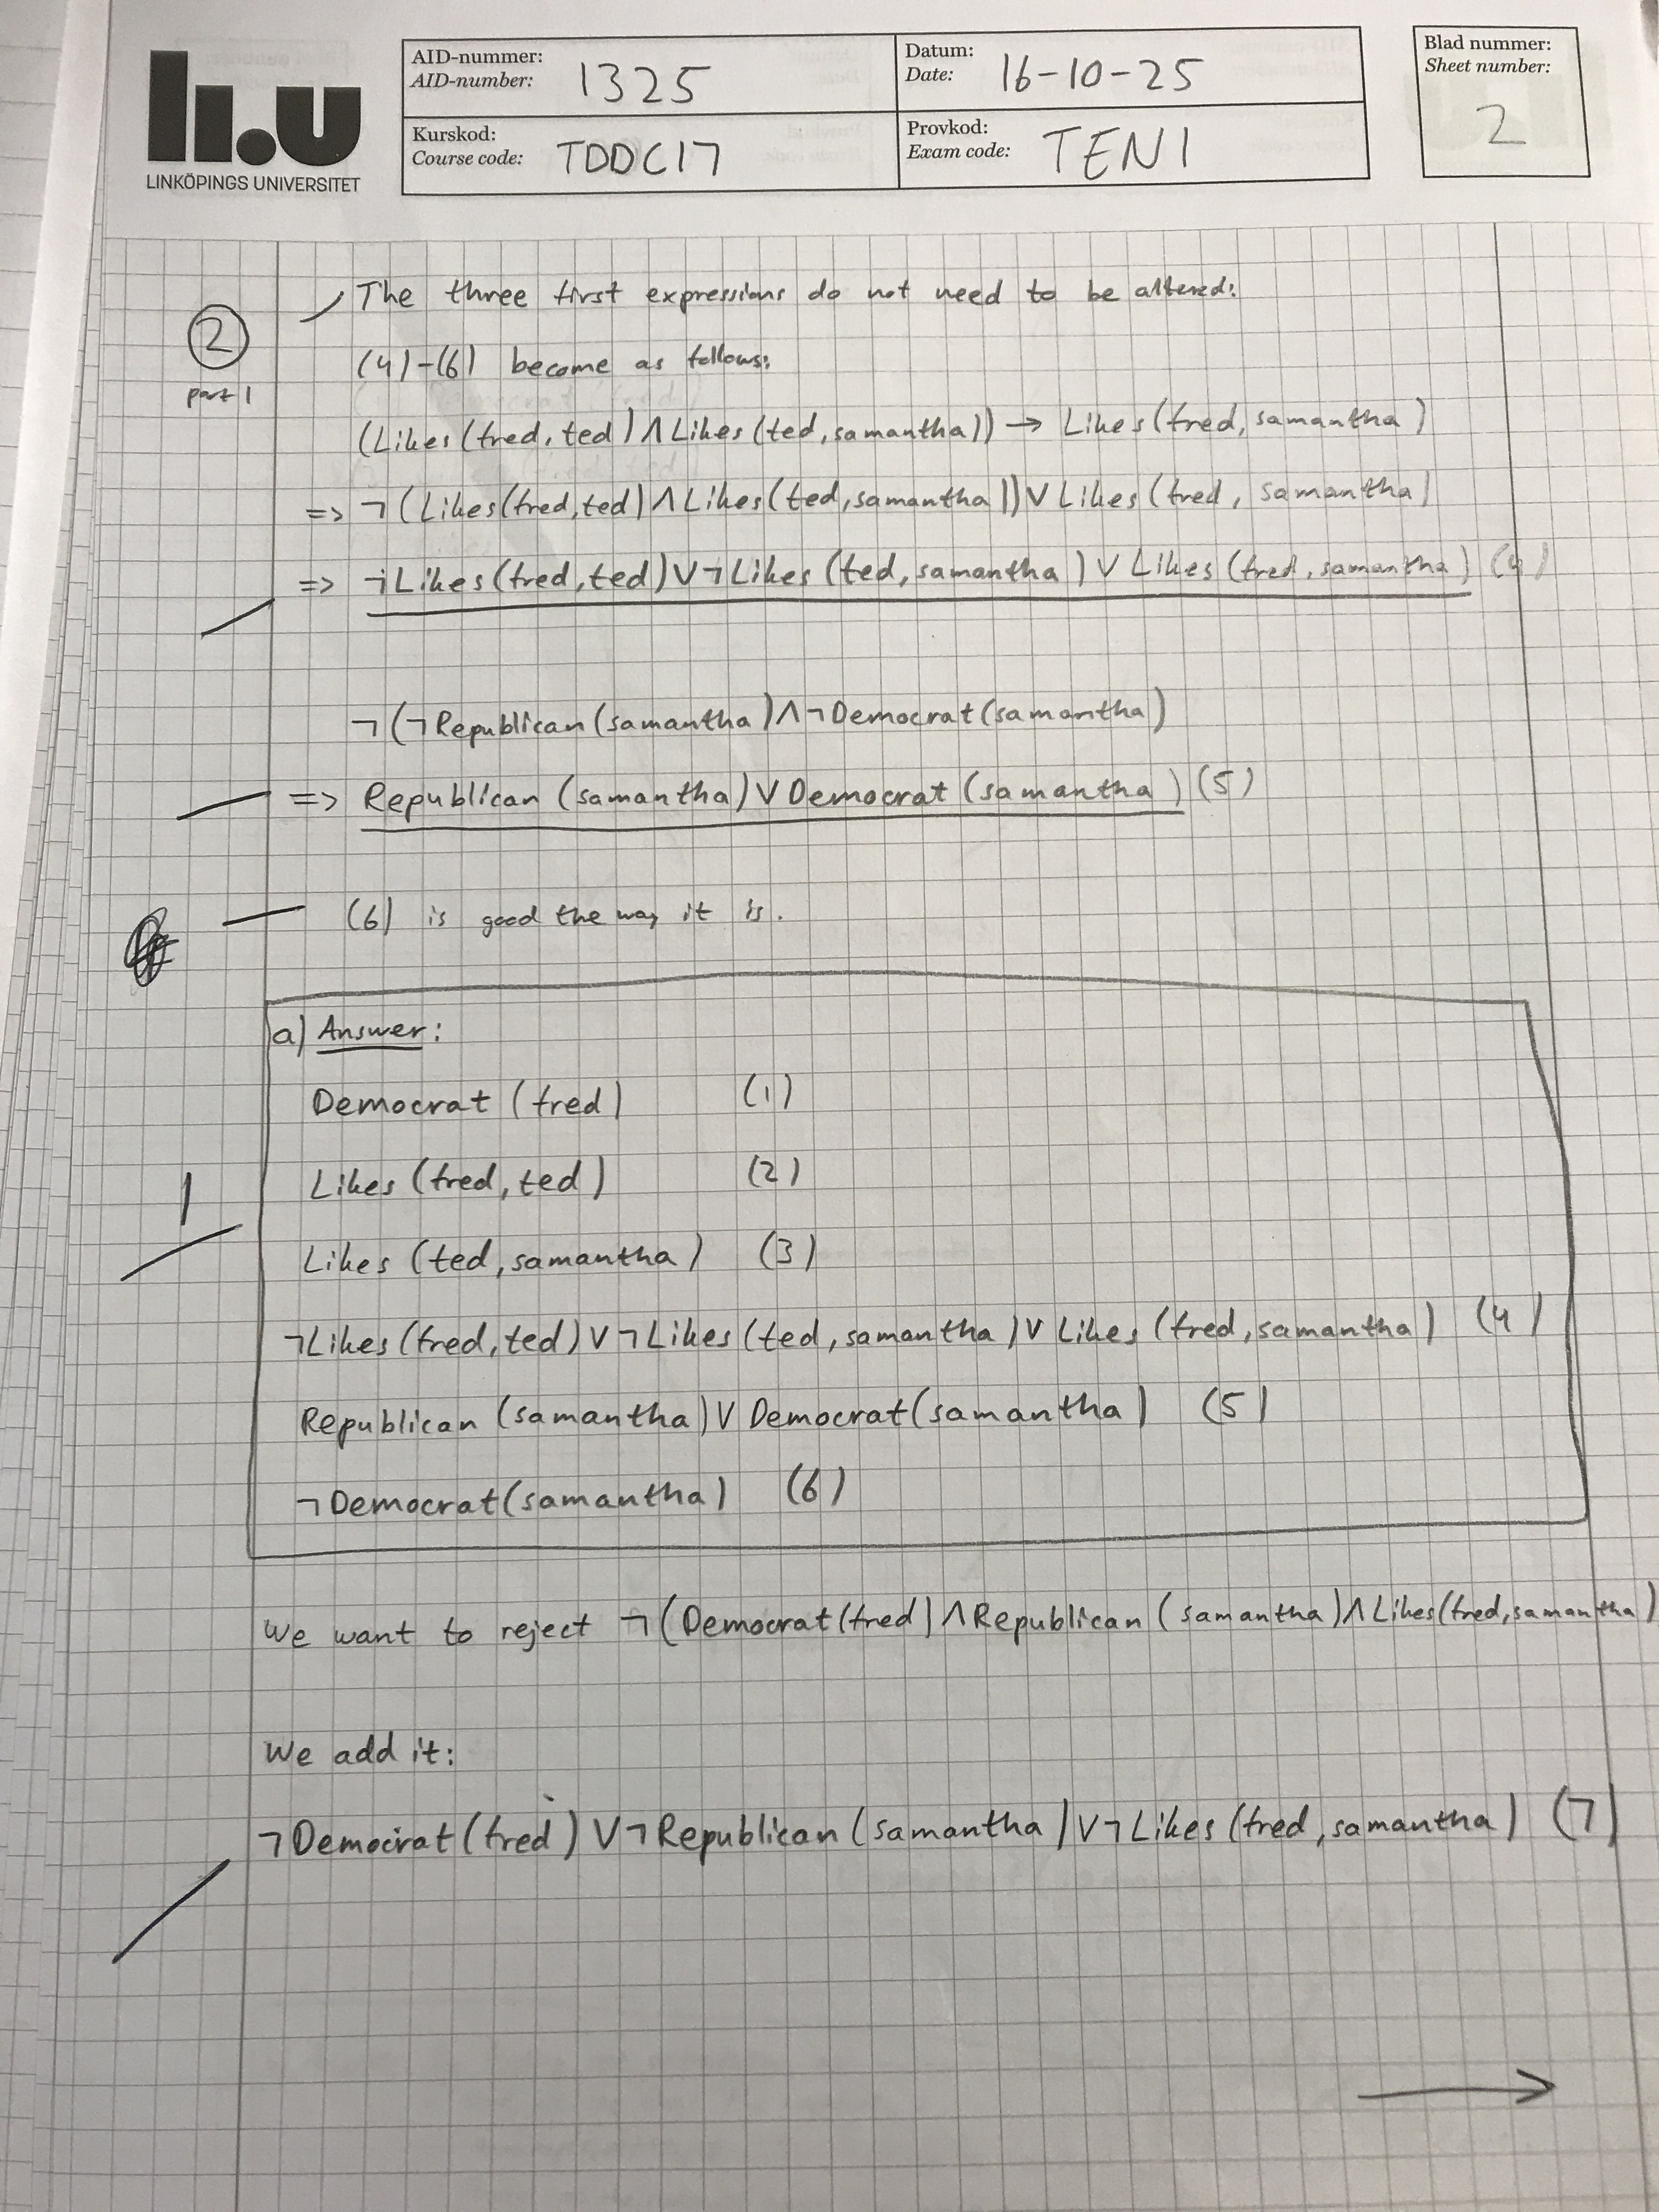 li.u
LINKÖPINGS UNIVERSITET
AID-nummer:
AID-number: 1325
Datum:
Date: 16-10-25
Blad nummer:
Sheet number:
2
Kurskod:
Course code: TDDC17
Provkod:
Exam code: TEN1
2
part 1
The three first expressions do not need to be altered:
(4)-(6) become as follows:
(Likes(fred, ted) ∧ Likes(ted, samantha)) → Likes(fred, samantha)
=> ¬(Likes(fred, ted) ∧ Likes(ted, samantha)) ∨ Likes(fred, samantha)
=> ¬Likes(fred, ted) ∨ ¬Likes(ted, samantha) ∨ Likes(fred, samantha) (4)
¬(¬Republican(samantha) ∧ ¬Democrat(samantha)
=> Republican(samantha) ∨ Democrat(samantha) (5)
(6) is good the way it is.
a) Answer:
Democrat(fred) (1)
Likes(fred, ted) (2)
1
Likes(ted, samantha) (3)
¬Likes(fred, ted) ∨ ¬Likes(ted, samantha) ∨ Likes(fred, samantha) (4)
Republican(samantha) ∨ Democrat(samantha) (5)
¬Democrat(samantha) (6)
We want to reject ¬(Democrat(fred) ∧ Republican(samantha) ∧ Likes(fred, samantha)
We add it:
¬Democrat(fred) ∨ ¬Republican(samantha) ∨ ¬Likes(fred, samantha) (7)